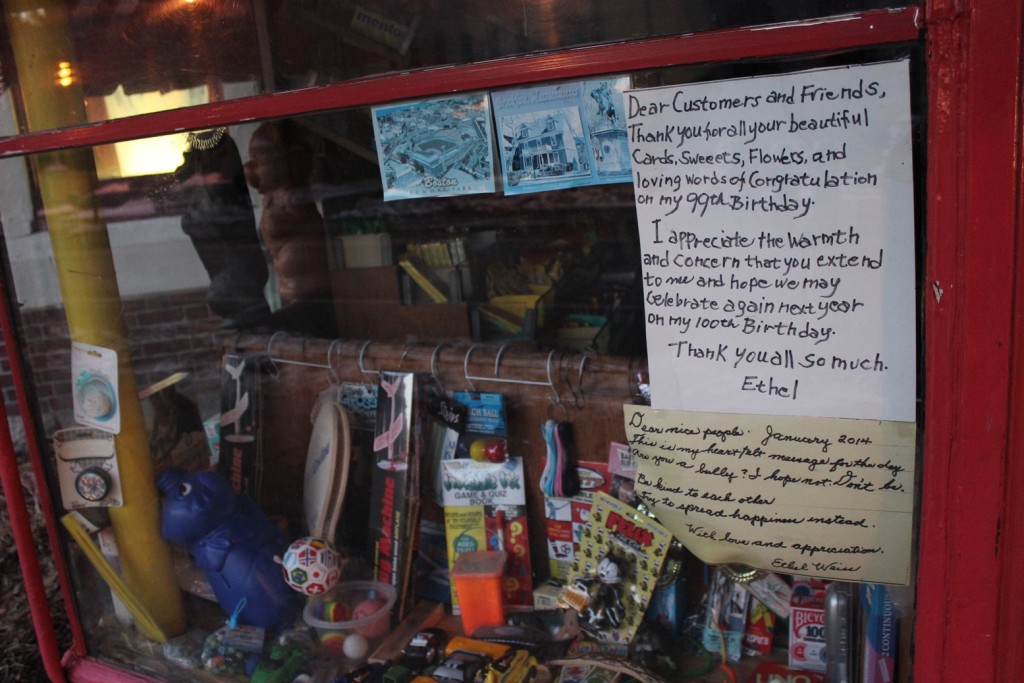 mento
Boston
Dear Customers and Friends,
Thank you for all your beautiful
Cards, Sweeets, Flowers, and
loving words of Congratulation
on my 99th Birthday.
I appreciate the warmth
and Concern that you extend
to me and hope we may
Celebrate again next year
on my 100th Birthday.
Thank you all so much.
Ethel
Dear nice people. January 2014
This is my heartfelt message for the day
Are you a bully? I hope not. Don't be.
Be kind to each other
Try to spread happiness instead.
With love and appreciation.
Ethel Weiss
GAME & QUIZ
BOOK
BICYCLE
100
UNO